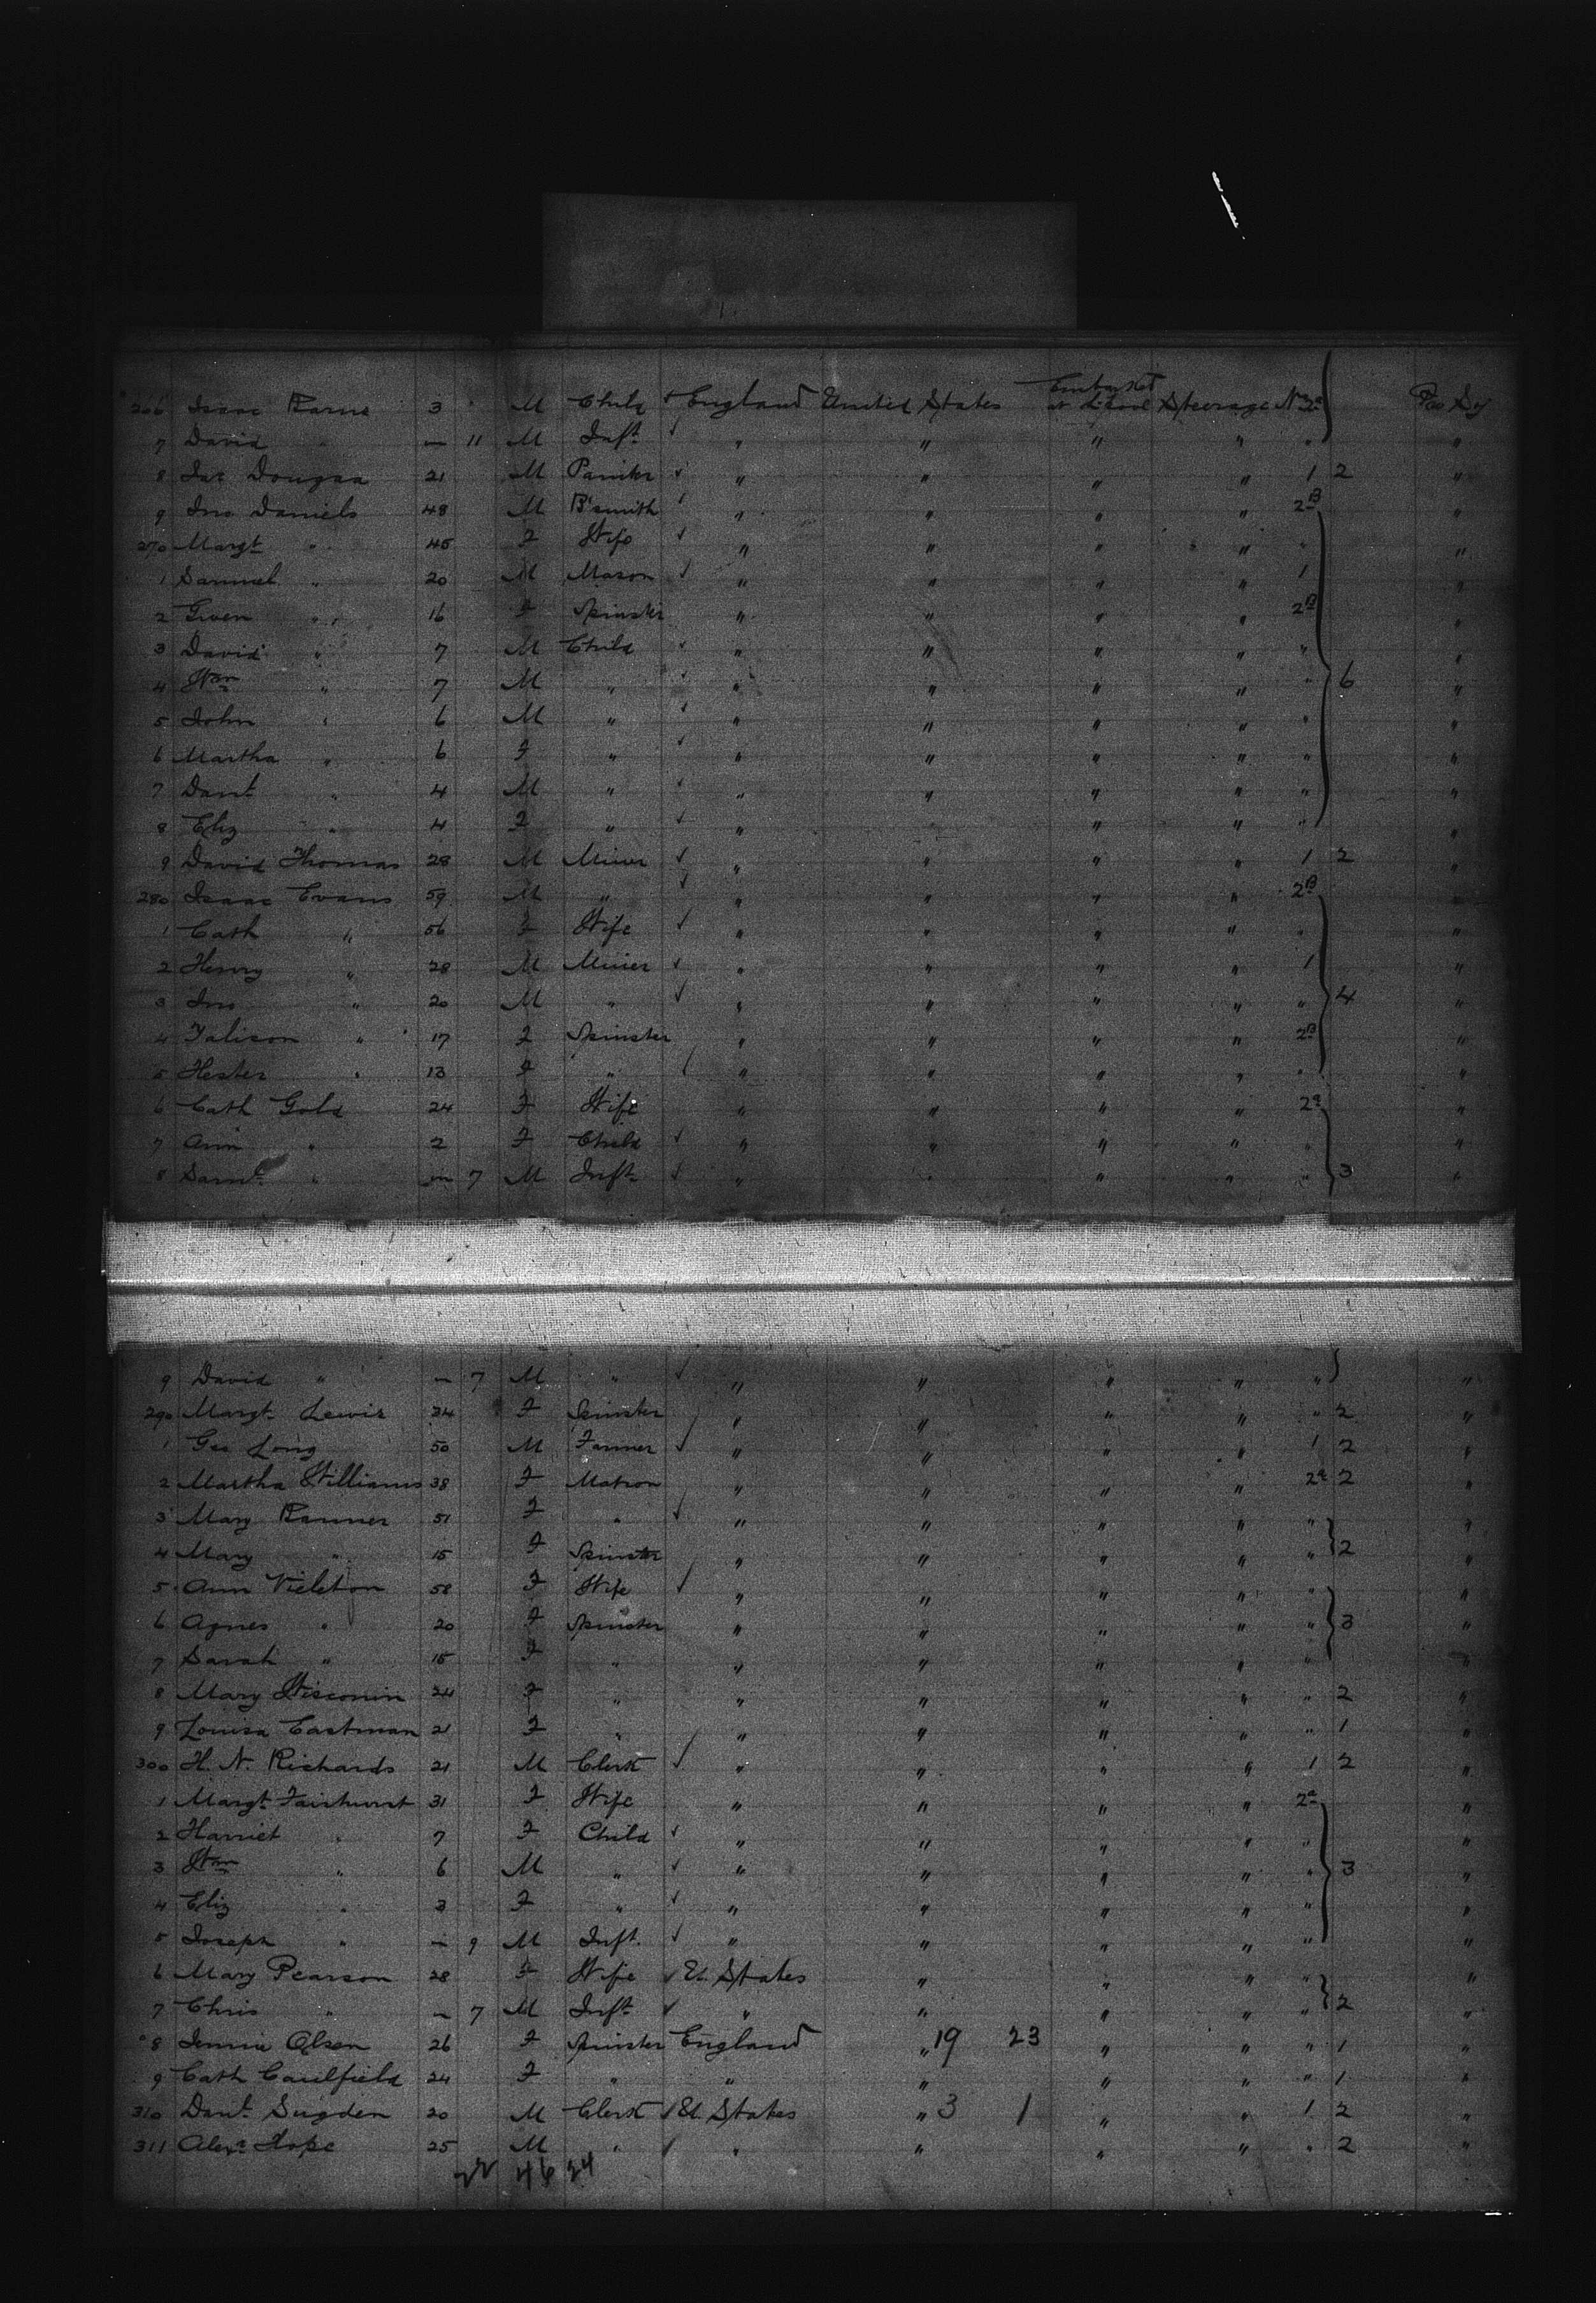 266 Isaac 3 M Child ✓ England United States Embarked at L'pool Steerage No 2a Pro Sg
7 David " — 11 M Inft ✓ " " " " "  "
8 Jas Dougaa 21 M Painter ✓ " " " " 1 2 "
9 Jno Daniels 48 M B'smith ✓ " " " " 2B "
270 Margt " 45 F Wife ✓ " " " " " "
1 Samuel " 20 M Mason ✓ " " " " 1 "
2 Gwen " 16 F Spinster " " " " 2B "
3 David " 7 M Child ✓ " " " " " "
4 Wm " 7 M " ✓ " " " " " 6 "
5 John " 6 M " ✓ " " " " " "
6 Martha " 6 F " ✓ " " " " " "
7 Danl " 4 M " ✓ " " " " " "
8 Eliz " 4 F " ✓ " " " " "
9 David Thomas 28 M Miner ✓ " " " " 1 2 "
280 Isaac Evans 59 M " ✓ " " " " 2B "
1 Cath " 56 F Wife ✓ " " " " " "
2 Henry " 28 M Miner ✓ " " " " 1 "
3 Jno " 20 M " ✓ " " " " " 4 "
4 Talison " 17 F Spinster " " " " 2B "
5 Hester " 13 F " " " " " " "
6 Cath Gold 24 F Wife " " " " 2a "
7 Ann " 2 F Child ✓ " " " " " "
8 Saml " — 7 M Inft ✓ " " " " " 3 "
9 David " — 7 M " ✓ " " " " " "
290 Margt Lewis 24 F Spinster " " " " " 2 "
1 Geo Long 50 M Farmer ✓ " " " " 1 2 "
2 Martha Williams 38 F Matron " " " " 2a 2 "
3 Mary 51 F " ✓ " " " " " "
4 Mary " 15 F Spinster " " " " " 2 "
5 Ann 58 F Wife ✓ " " " " " "
6 Agnes " 20 F Spinster " " " " " 3 "
7 Sarah " 15 F " " " " " " "
8 Mary Wisconin 24 F " " " " " " 2 "
9 Louisa Eastman 21 F " " " " " " 1 "
300 H. N. Richards 21 M Clerk ✓ " " " " 1 2 "
1 Margt Fairhurst 31 F Wife " " " " 2a "
2 Harriet " 7 F Child ✓ " " " " " "
3 Wm " 6 M " ✓ " " " " " 3 "
4 Eliz " 3 F " ✓ " " " " " "
5 Joseph " — 9 M Inft. ✓ " " " " " "
6 Mary Pearson 28 F Wife ✓ U. States " " " " "
7 Chris " — 7 M Inft ✓ " " " " " 2 "
8 Jennie Olsen 26 F Spinster England " 19 23 " " " 1 "
9 Cath Caulfield 24 F " " " " " " 1 "
310 Danl Sugden 20 M Clerk ✓ U. States " 3 1 " " 1 2 "
311 Alexr Hope 25 M " ✓ " " " " " 2 "
22 46 24